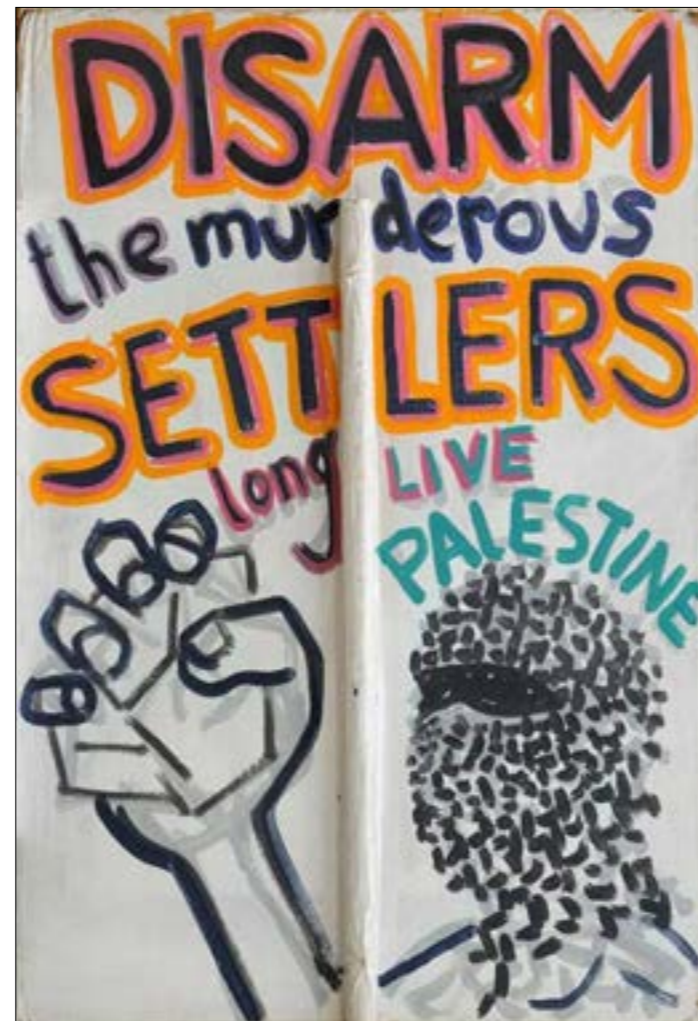 DISARM
the murderous
SETTLERS
long LIVE
PALESTINE